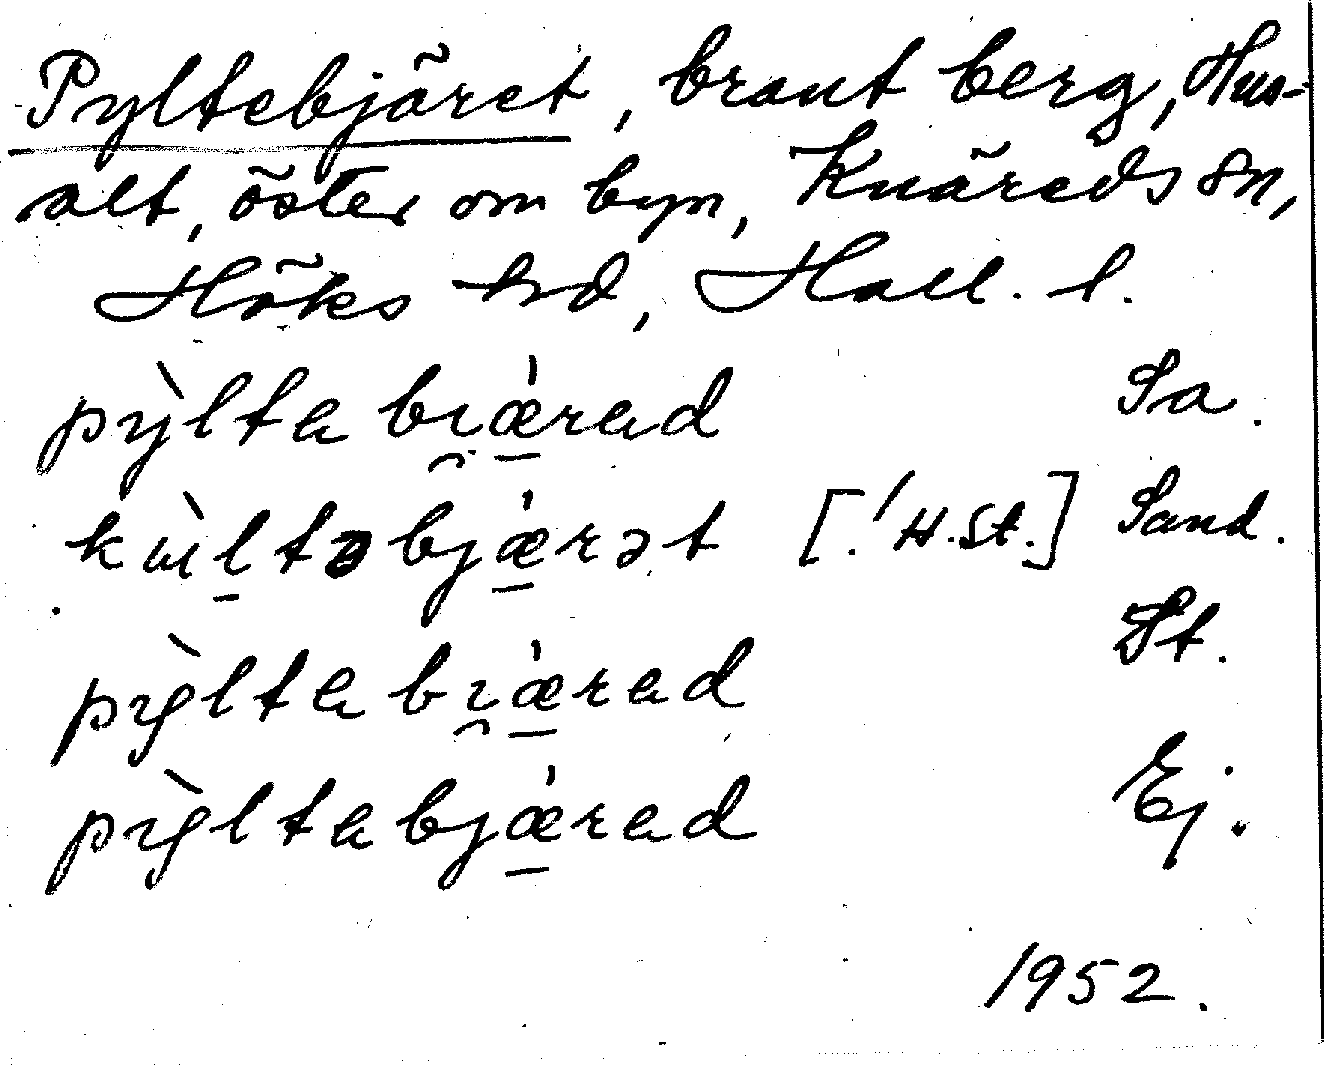 Pyltebjäret, brant berg, Hus-
alt, öster om byn, Knäreds sn,
Höks hd, Hall. l.
pỳlta bi̯æ̠̍rad Sa.
kɯ̀l̠təbjæ̠̍rət [! H.St.] Sand.
pỳlta bi̯æ̠̍rad St.
pỳltabjæ̠̍rad Ej.
1952.